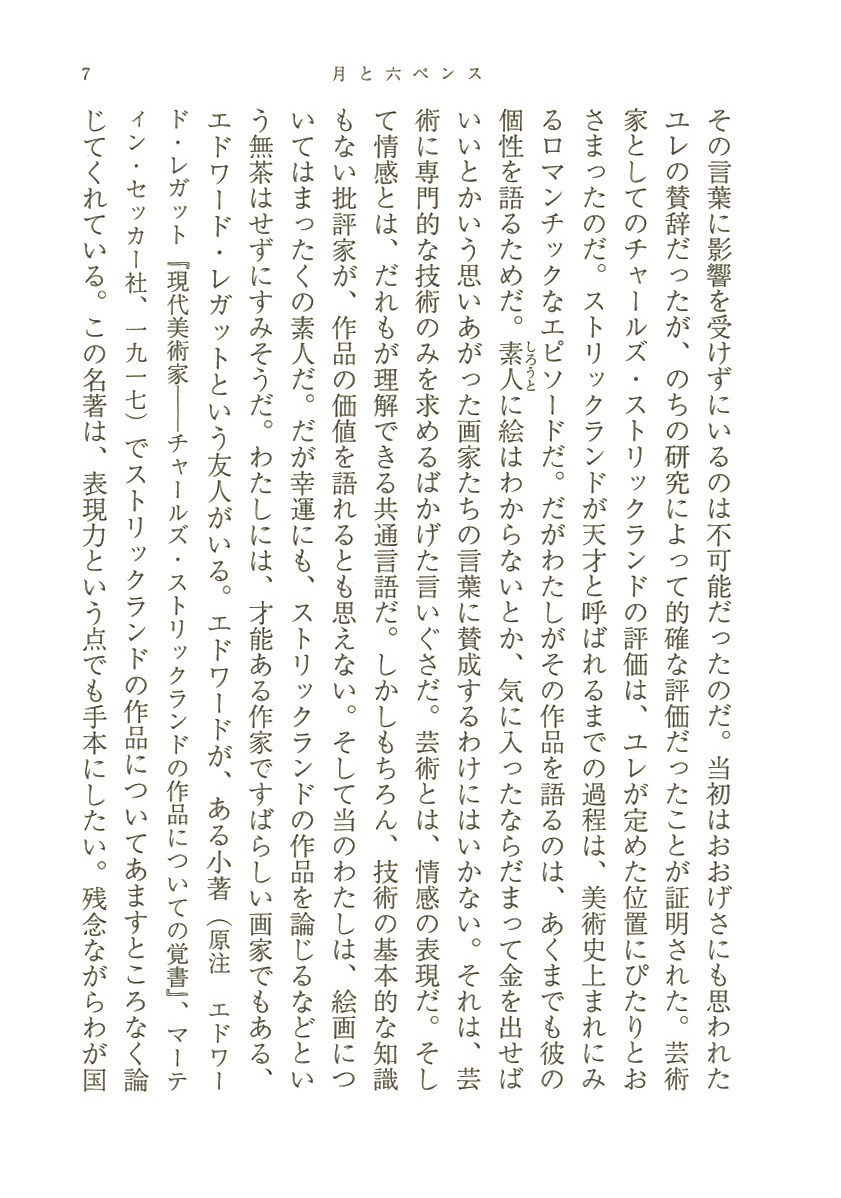 7
月と六ペンス
その言葉に影響を受けずにいるのは不可能だったのだ。当初はおおげさにも思われた
ユレの賛辞だったが、のちの研究によって的確な評価だったことが証明された。芸術
家としてのチャールズ・ストリックランドの評価は、ユレが定めた位置にぴたりとお
さまったのだ。ストリックランドが天才と呼ばれるまでの過程は、美術史上まれにみ
るロマンチックなエピソードだ。だがわたしがその作品を語るのは、あくまでも彼の
個性を語るためだ。素人しろうとに絵はわからないとか、気に入ったならだまって金を出せば
いいとかいう思いあがった画家たちの言葉に賛成するわけにはいかない。それは、芸
術に専門的な技術のみを求めるばかげた言いぐさだ。芸術とは、情感の表現だ。そし
て情感とは、だれもが理解できる共通言語だ。しかしもちろん、技術の基本的な知識
もない批評家が、作品の価値を語れるとも思えない。そして当のわたしは、絵画につ
いてはまったくの素人だ。だが幸運にも、ストリックランドの作品を論じるなどとい
う無茶はせずにすみそうだ。わたしには、才能ある作家ですばらしい画家でもある、
エドワード・レガットという友人がいる。エドワードが、ある小著（原注　エドワー
ド・レガット『現代美術家――チャールズ・ストリックランドの作品についての覚書』、マーテ
ィン・セッカー社、一九一七）でストリックランドの作品についてあますところなく論
じてくれている。この名著は、表現力という点でも手本にしたい。残念ながらわが国